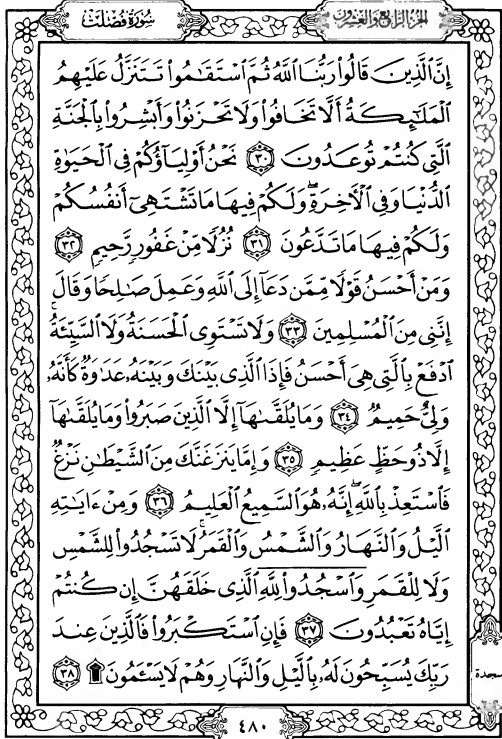 الجزء الرابع والعشرون
سورة فصلت
إِنَّ ٱلَّذِينَ قَالُوا۟ رَبُّنَا ٱللَّهُ ثُمَّ ٱسْتَقَٰمُوا۟ تَتَنَزَّلُ عَلَيْهِمُ
ٱلْمَلَٰٓئِكَةُ أَلَّا تَخَافُوا۟ وَلَا تَحْزَنُوا۟ وَأَبْشِرُوا۟ بِٱلْجَنَّةِ
ٱلَّتِى كُنتُمْ تُوعَدُونَ ٣٠ نَحْنُ أَوْلِيَآؤُكُمْ فِى ٱلْحَيَوٰةِ
ٱلدُّنْيَا وَفِى ٱلْـَٔاخِرَةِ ۖ وَلَكُمْ فِيهَا مَا تَشْتَهِىٓ أَنفُسُكُمْ
وَلَكُمْ فِيهَا مَا تَدَّعُونَ ٣١ نُزُلًا مِّنْ غَفُورٍ رَّحِيمٍ ٣٢
وَمَنْ أَحْسَنُ قَوْلًا مِّمَّن دَعَآ إِلَى ٱللَّهِ وَعَمِلَ صَٰلِحًا وَقَالَ
إِنَّنِى مِنَ ٱلْمُسْلِمِينَ ٣٣ وَلَا تَسْتَوِى ٱلْحَسَنَةُ وَلَا ٱلسَّيِّئَةُ ۚ
ٱدْفَعْ بِٱلَّتِى هِىَ أَحْسَنُ فَإِذَا ٱلَّذِى بَيْنَكَ وَبَيْنَهُۥ عَدَٰوَةٌ كَأَنَّهُۥ
وَلِىٌّ حَمِيمٌ ٣٤ وَمَا يُلَقَّىٰهَآ إِلَّا ٱلَّذِينَ صَبَرُوا۟ وَمَا يُلَقَّىٰهَآ
إِلَّا ذُو حَظٍّ عَظِيمٍ ٣٥ وَإِمَّا يَنزَغَنَّكَ مِنَ ٱلشَّيْطَٰنِ نَزْغٌ
فَٱسْتَعِذْ بِٱللَّهِ ۖ إِنَّهُۥ هُوَ ٱلسَّمِيعُ ٱلْعَلِيمُ ٣٦ وَمِنْ ءَايَٰتِهِ
ٱلَّيْلُ وَٱلنَّهَارُ وَٱلشَّمْسُ وَٱلْقَمَرُ ۚ لَا تَسْجُدُوا۟ لِلشَّمْسِ
وَلَا لِلْقَمَرِ وَٱسْجُدُوا۟ لِلَّهِ ٱلَّذِى خَلَقَهُنَّ إِن كُنتُمْ
إِيَّاهُ تَعْبُدُونَ ٣٧ فَإِنِ ٱسْتَكْبَرُوا۟ فَٱلَّذِينَ عِندَ
رَبِّكَ يُسَبِّحُونَ لَهُۥ بِٱلَّيْلِ وَٱلنَّهَارِ وَهُمْ لَا يَسْـَٔمُونَ ۩ ٣٨
سجدة
٤٨٠